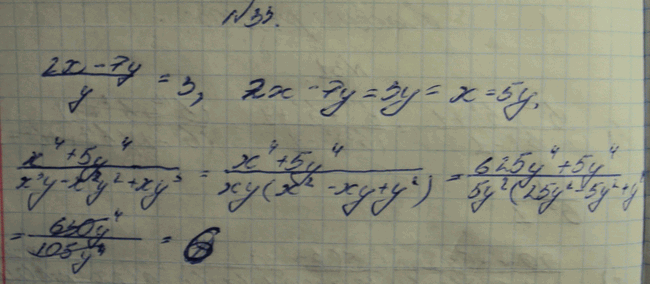 №33.
(2x - 7y)/y = 3, 2x - 7y = 3y = x = 5y,
(x⁴ + 5y⁴)/(x³y - x²y² + xy³) = (x⁴ + 5y⁴)/(xy(x² - xy + y²)) = (625y⁴ + 5y⁴)/(5y²(25y² - 5y² + y
= 630y⁴/105y⁴ = 6